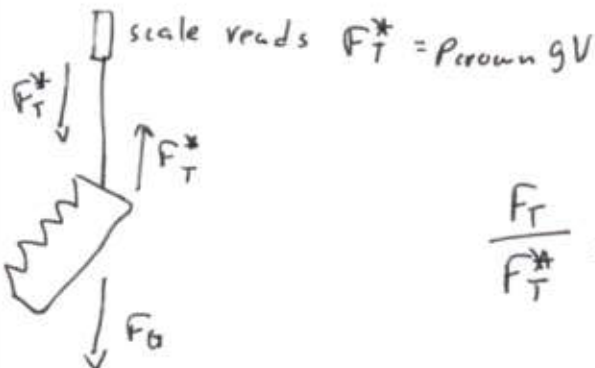 scale reads F_T^* = ρ_crown g V
F_T^*
F_T^*
F_T
F_T^*
F_G